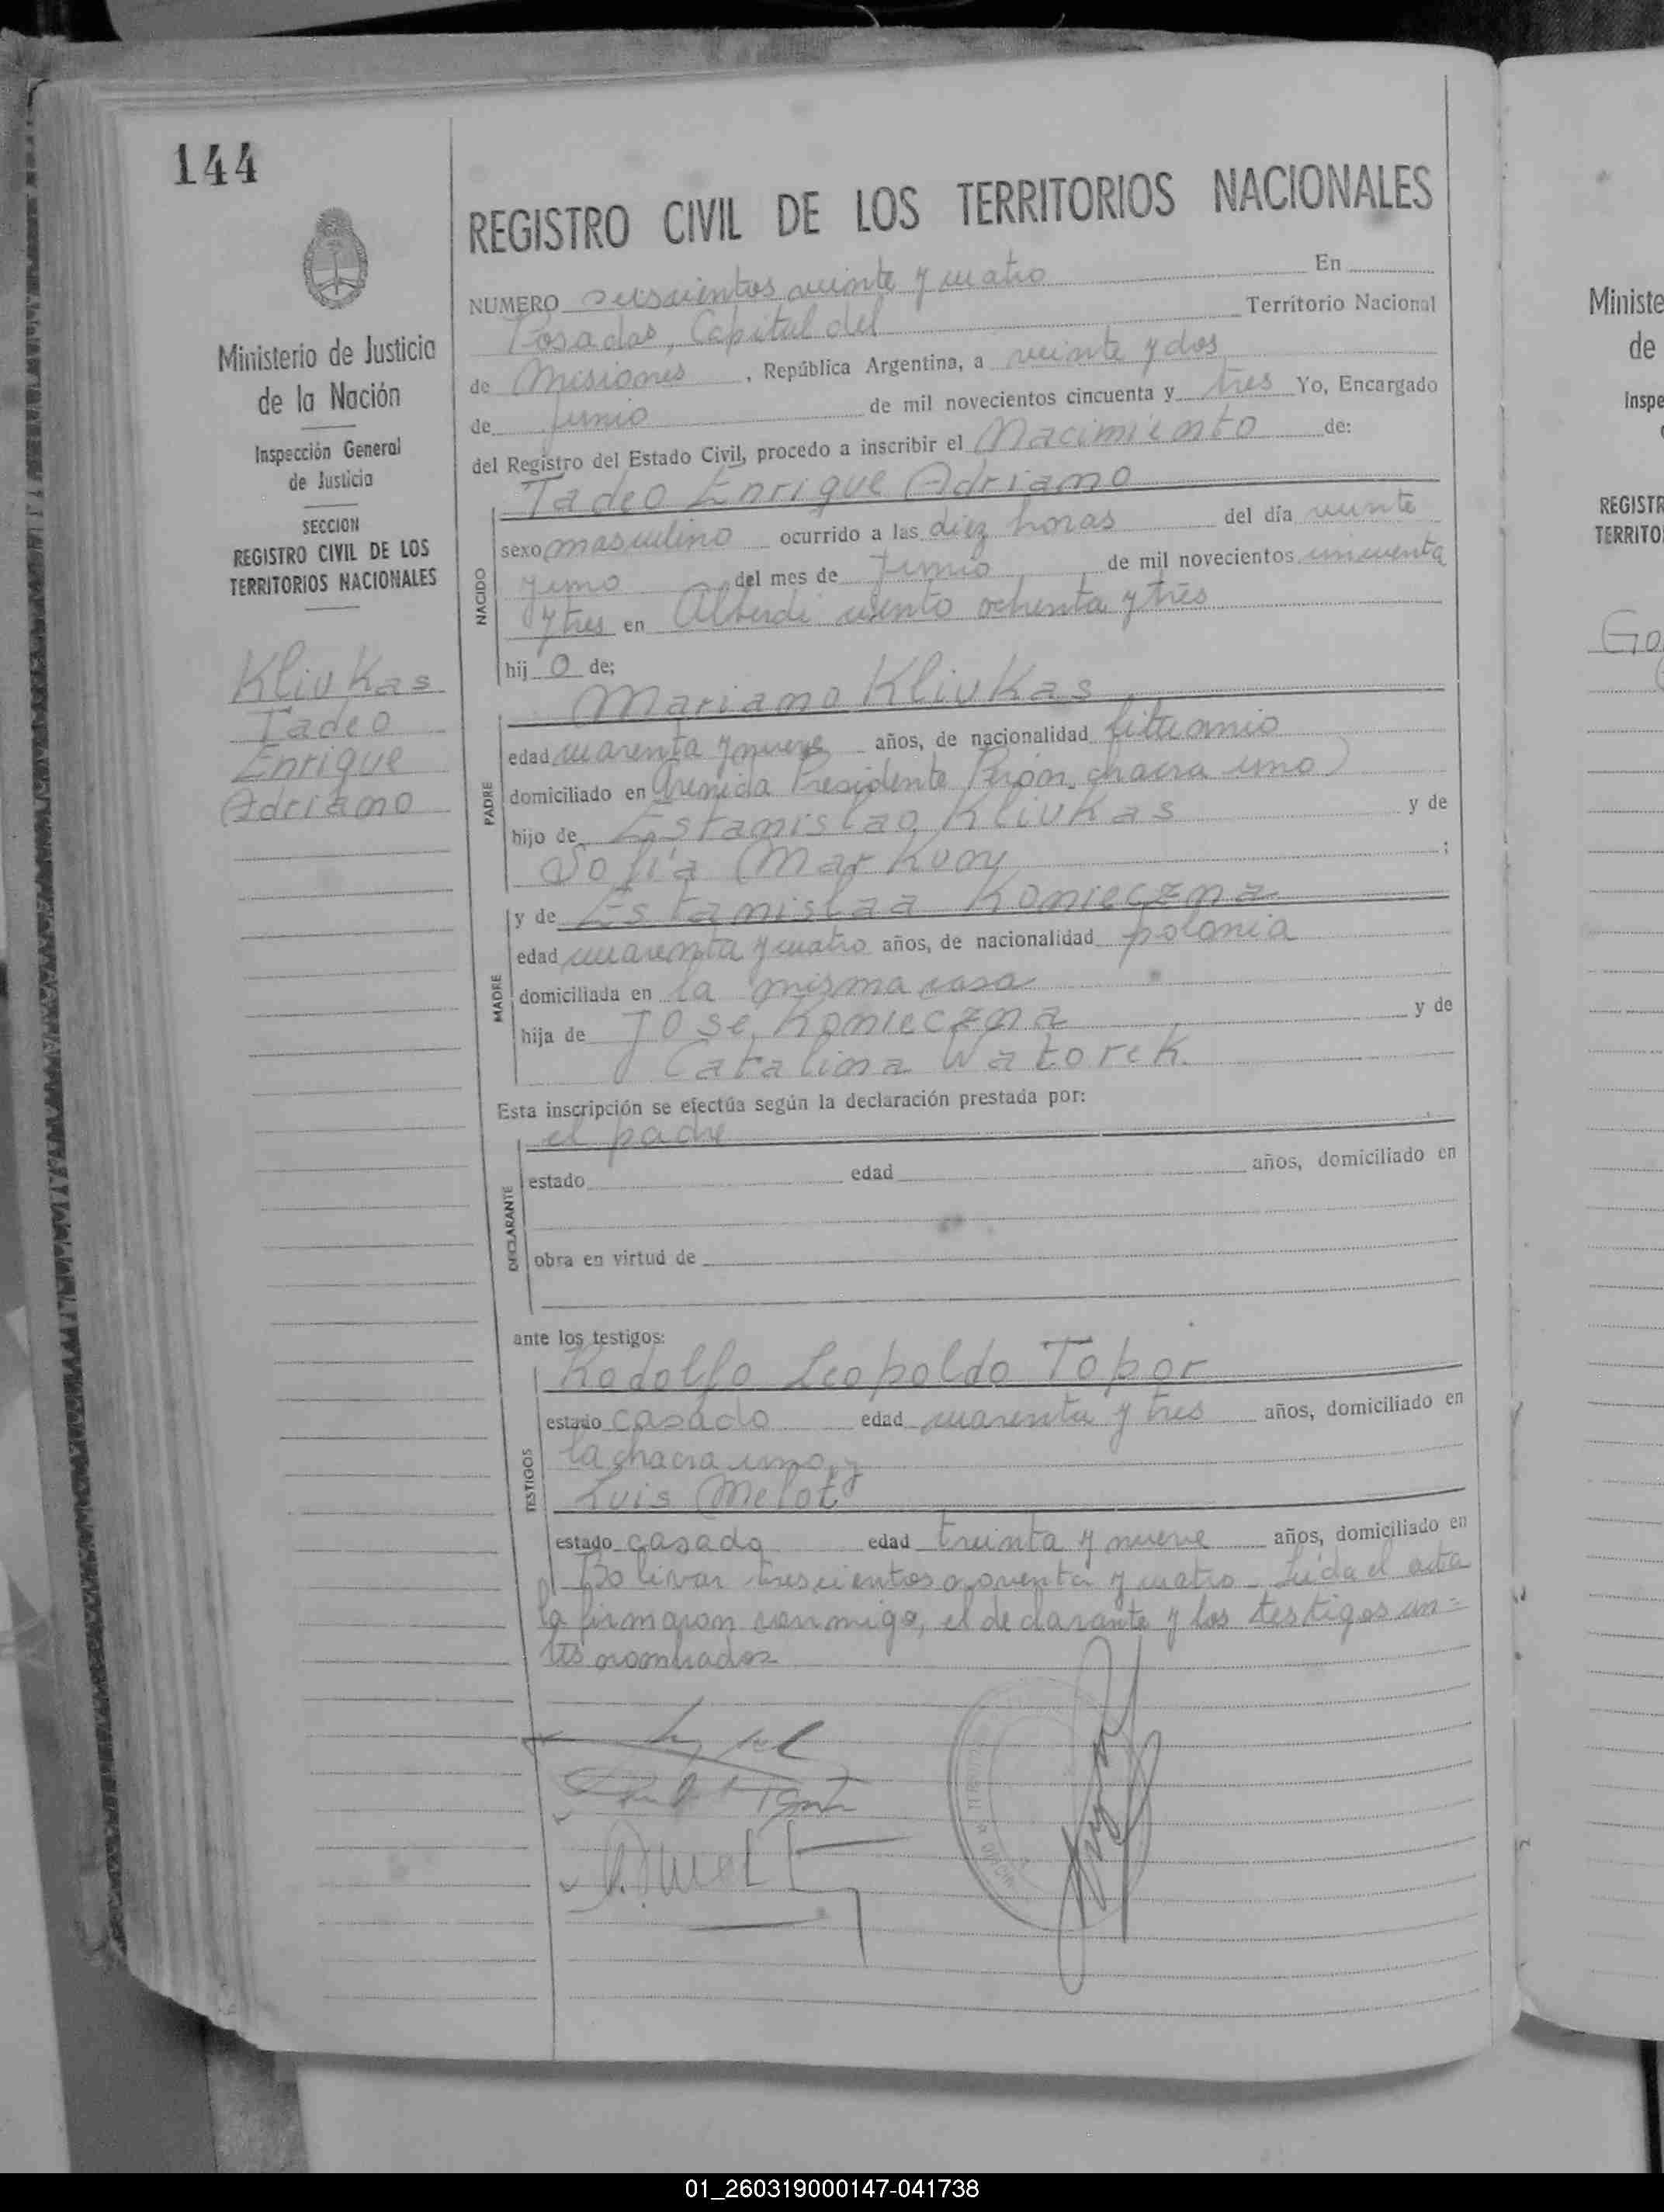 144
REGISTRO CIVIL DE LOS TERRITORIOS NACIONALES
Ministerio de Justicia
de la Nación
Inspección General
de Justicia
SECCION
REGISTRO CIVIL DE LOS
TERRITORIOS NACIONALES
Klivkas
Tadeo
Enrique
Adriano
NUMERO seiscientos veinte y cuatro En
Posadas, Capital del Territorio Nacional
de Misiones, República Argentina, a veinte y dos
de Junio de mil novecientos cincuenta y tres Yo, Encargado
del Registro del Estado Civil, procedo a inscribir el Nacimiento de:
Tadeo Enrique Adriano
NACIDO
sexo masculino ocurrido a las diez horas del día veinte
y uno del mes de Junio de mil novecientos cincuenta
y tres en Alberdi ciento ochenta y tres
hij o de;
Mariano Klivkas
PADRE
edad cuarenta y nueve años, de nacionalidad lituanio
domiciliado en Avenida Presidente Perón chacra uno)
hijo de Estanislao Klivkas y de
Sofía Markuny ;
y de Estanislaa Konieczna
MADRE
edad cuarenta y cuatro años, de nacionalidad polonia
domiciliada en la misma casa
hija de José Konieczna y de
Catalina Watorek
Esta inscripción se efectúa según la declaración prestada por:
el padre
DECLARANTE
estado edad años, domiciliado en
obra en virtud de
ante los testigos:
Rodolfo Leopoldo Topor
TESTIGOS
estado casado edad cuarenta y tres años, domiciliado en
la chacra uno, y
Luis Melot
estado casado edad treinta y nueve años, domiciliado en
Bolivar trescientos noventa y cuatro - Leida el acta
la firmaron conmigo, el declarante y los testigos an=
tes nombrados
Ministe
de
Inspe
REGISTR
TERRITO
Go
01_260319000147-041738